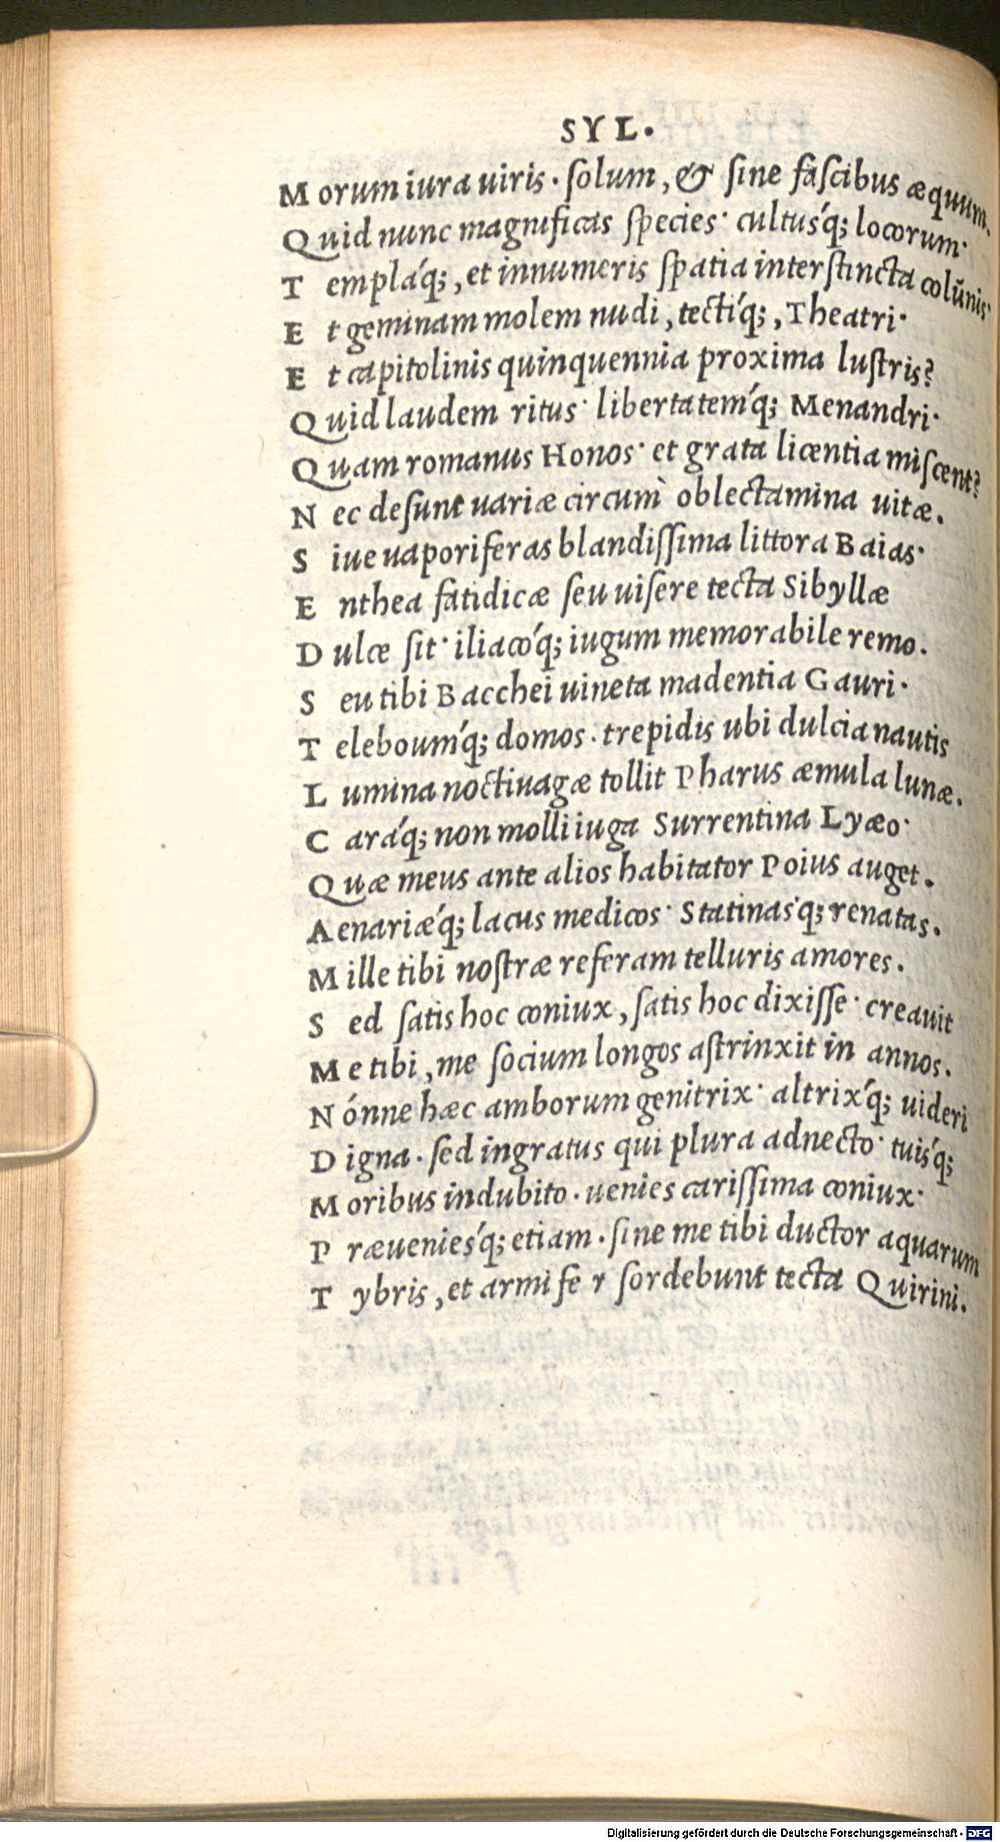 SYL.
Morum iura uiris· ſolum, & ſine faſcibus æquum.
Quid nunc magnificas ſpecies· cultusq́; locorum·
Templáq́;, et innumeris ſpatia interſtincta colūnis·
Et geminam molem nudi, tectiq́;, Theatri·
Et capitolinis quinquennia proxima luſtris?
Quid laudem ritus· libertatemq́; Menandri·
Quam romanus Honos· et grata licentia miſcent?
Nec deſunt uariæ circum oblectamina uitæ.
Siue uaporiferas blandiſſima littora Baias·
Enthea fatidicæ ſeu uiſere tecta Sibyllæ
Dulce ſit· iliacoq́; iugum memorabile remo.
Seu tibi Bacchei uineta madentia Gauri·
Teleboumq́; domos· trepidis ubi dulcia nautis
Lumina noctiuagæ tollit Pharus æmula lunæ.
Caraq́; non molli iuga Surrentina Lyæo·
Quæ meus ante alios habitator Poius auget.
Aenariæq́; lacus medicos· Statinasq́; renatas.
Mille tibi noſtræ referam telluris amores.
Sed ſatis hoc coniux, ſatis hoc dixiſſe· creauit
Me tibi, me ſocium longos aſtrinxit in annos.
Nónne hæc amborum genitrix· altrixq́; uideri
Digna· ſed ingratus qui plura adnecto· tuisq́;
Moribus indubito· uenies cariſſima coniux·
Præuenieſq́; etiam· ſine me tibi ductor aquarum
Tybris, et armiferi ſordebunt tecta Quirini.
Digitalisierung gefördert durch die Deutsche Forschungsgemeinschaft - DFG